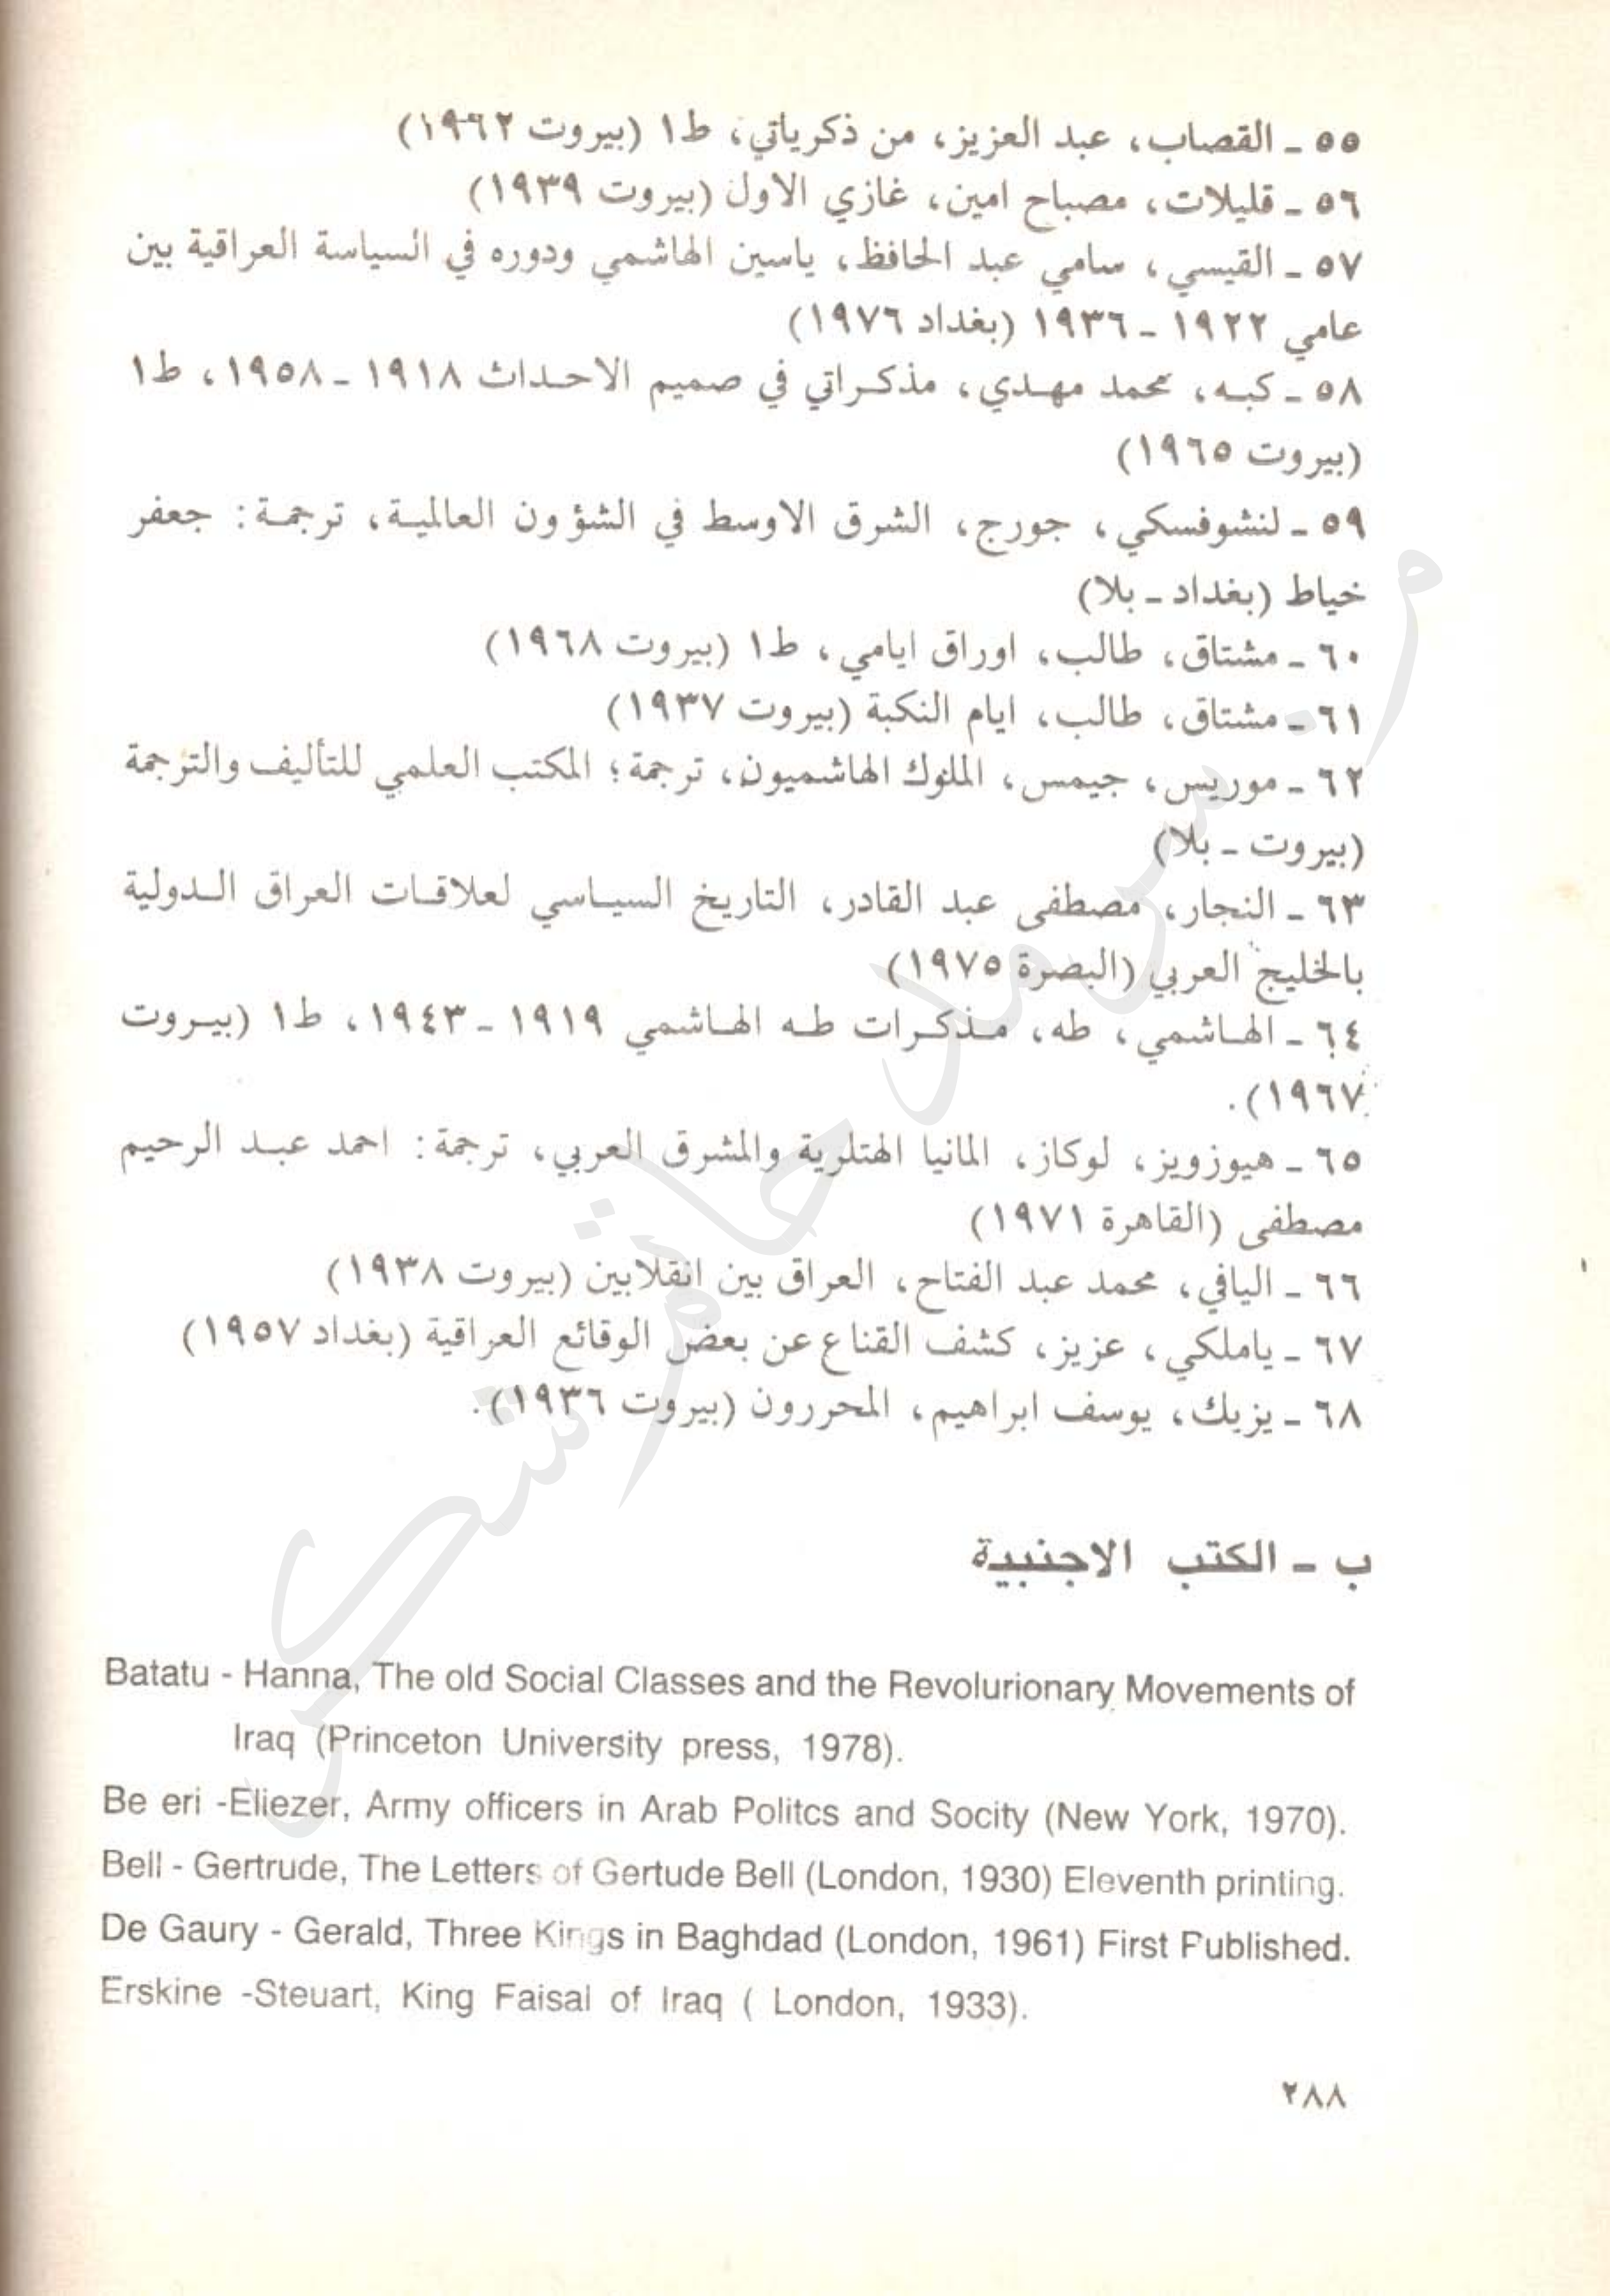 ٥٥ - القصاب، عبد العزيز، من ذكرياتي، ط١ (بيروت ١٩٦٢)
٥٦ - قليلات، مصباح امين، غازي الاول (بيروت ١٩٣٩)
٥٧ - القيسي، سامي عبد الحافظ، ياسين الهاشمي ودوره في السياسة العراقية بين
عامي ١٩٢٢ - ١٩٣٦ (بغداد ١٩٧٦)
٥٨ - كبه، محمد مهدي، مذكراتي في صميم الاحداث ١٩١٨ - ١٩٥٨، ط١
(بيروت ١٩٦٥)
٥٩ - لنشوفسكي، جورج، الشرق الاوسط في الشؤون العالمية، ترجمة: جعفر
خياط (بغداد - بلا)
٦٠ - مشتاق، طالب، اوراق ايامي، ط١ (بيروت ١٩٦٨)
٦١ - مشتاق، طالب، ايام النكبة (بيروت ١٩٣٧)
٦٢ - موريس، جيمس، الملوك الهاشميون، ترجمة؛ المكتب العلمي للتأليف والترجمة
(بيروت - بلا)
٦٣ - النجار، مصطفى عبد القادر، التاريخ السياسي لعلاقات العراق الدولية
بالخليج العربي (البصرة ١٩٧٥)
٦٤ - الهاشمي، طه، مذكرات طه الهاشمي ١٩١٩ - ١٩٤٣، ط١ (بيروت
١٩٦٧).
٦٥ - هيوزويز، لوكاز، المانيا الهتلرية والمشرق العربي، ترجمة: احمد عبد الرحيم
مصطفى (القاهرة ١٩٧١)
٦٦ - اليافي، محمد عبد الفتاح، العراق بين انقلابين (بيروت ١٩٣٨)
٦٧ - ياملكي، عزيز، كشف القناع عن بعض الوقائع العراقية (بغداد ١٩٥٧)
٦٨ - يزبك، يوسف ابراهيم، المحررون (بيروت ١٩٣٦).
ب - الكتب الاجنبية
Batatu - Hanna, The old Social Classes and the Revolurionary Movements of
Iraq (Princeton University press, 1978).
Be eri -Eliezer, Army officers in Arab Politcs and Socity (New York, 1970).
Bell - Gertrude, The Letters of Gertude Bell (London, 1930) Eleventh printing.
De Gaury - Gerald, Three Kings in Baghdad (London, 1961) First Published.
Erskine -Steuart, King Faisal of Iraq ( London, 1933).
٢٨٨